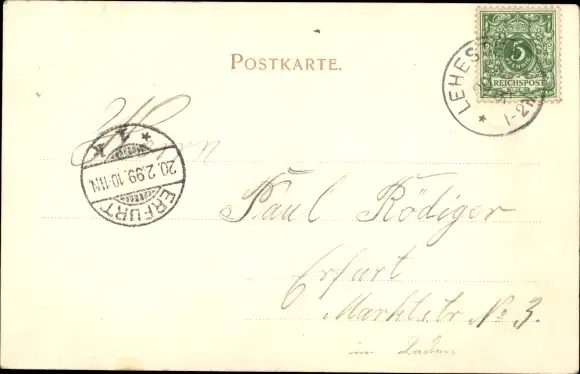 POSTKARTE.
5
PFENNIG
REICHSPOST
LEHES
1-2N
*
Herrn
* 1 K
20.2.99.10-11N.
ERFURT
Paul Rödiger
Erfurt
Marktstr No 3.
im Laden